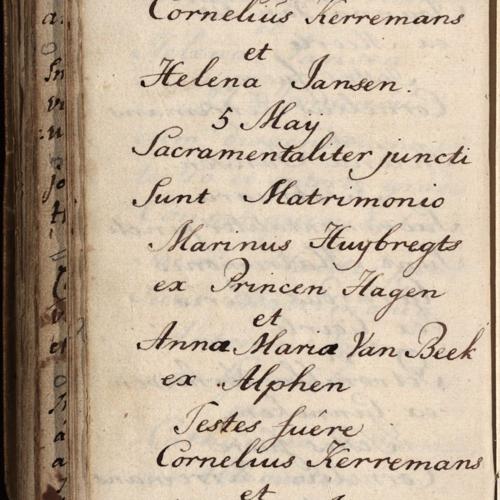 Cornelius Kerremans
et
Helena Jansen.
5 Maij
Sacramentaliter juncti
sunt Matrimonio
Marinus Huybregts
ex Princen Hagen
et
Anna Maria Van Beek
ex Alphen
Testes fuêre
Cornelius Kerremans
et